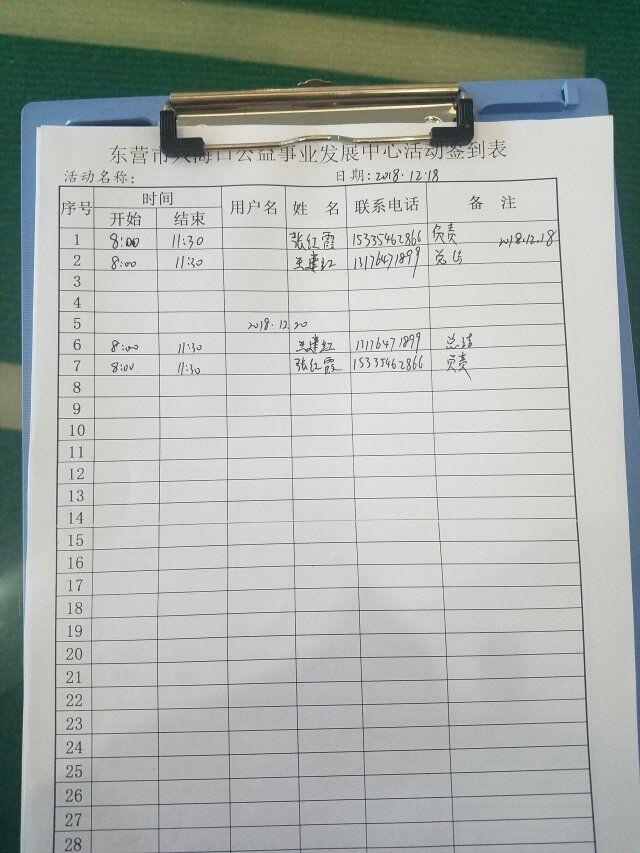 东营市入海口公益事业发展中心活动签到表
活动名称： 日期：2018.12.18
序号 时间 用户名 姓 名 联系电话 备 注
开始 结束
1 8:00 11:30 张红霞 15335462866 负责 2018.12.18
2 8:00 11:30 王建红 13176471899 总结
3
4
5 2018.12.20
6 8:00 11:30 王建红 13176471899 总结
7 8:00 11:30 张红霞 15335462866 负责
8
9
10
11
12
13
14
15
16
17
18
19
20
21
22
23
24
25
26
27
28